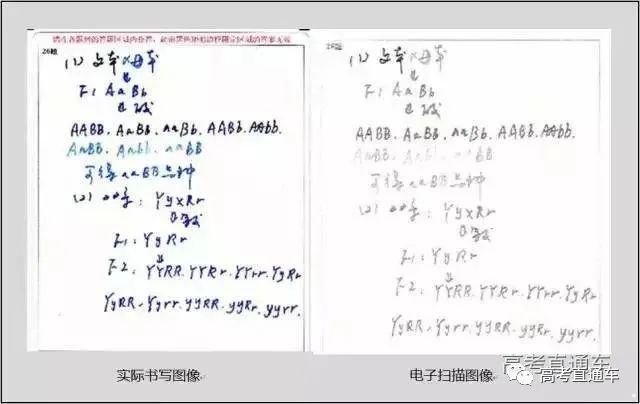 请在各题目的答题区域内作答，超出黑色矩形边框限定区域的答案无效
26题
(1) 父本×母本
F1 AaBb
AABB. AaBb. aaBb. AABb. AAbb.
AaBB. Aabb. aaBB
可得aaBB品种
(2) 四季: YyXRr
F1: YyRr
F2: YYRR. YYRr. YYrr. YyRr
YyRR. Yyrr. yyRR. yyRr. yyrr.
实际书写图像
26题
(1) 父本×母本
F1 AaBb
AABB. AaBb. aaBb. AABb. AAbb.
AaBB. Aabb. aaBB
可得aaBB品种
F1: YyRr
F2: YYRR. YYRr. YYrr. YyRr
YyRR. Yyrr. yyRR. yyRr. yyrr.
电子扫描图像
高考直通车
高考直通车